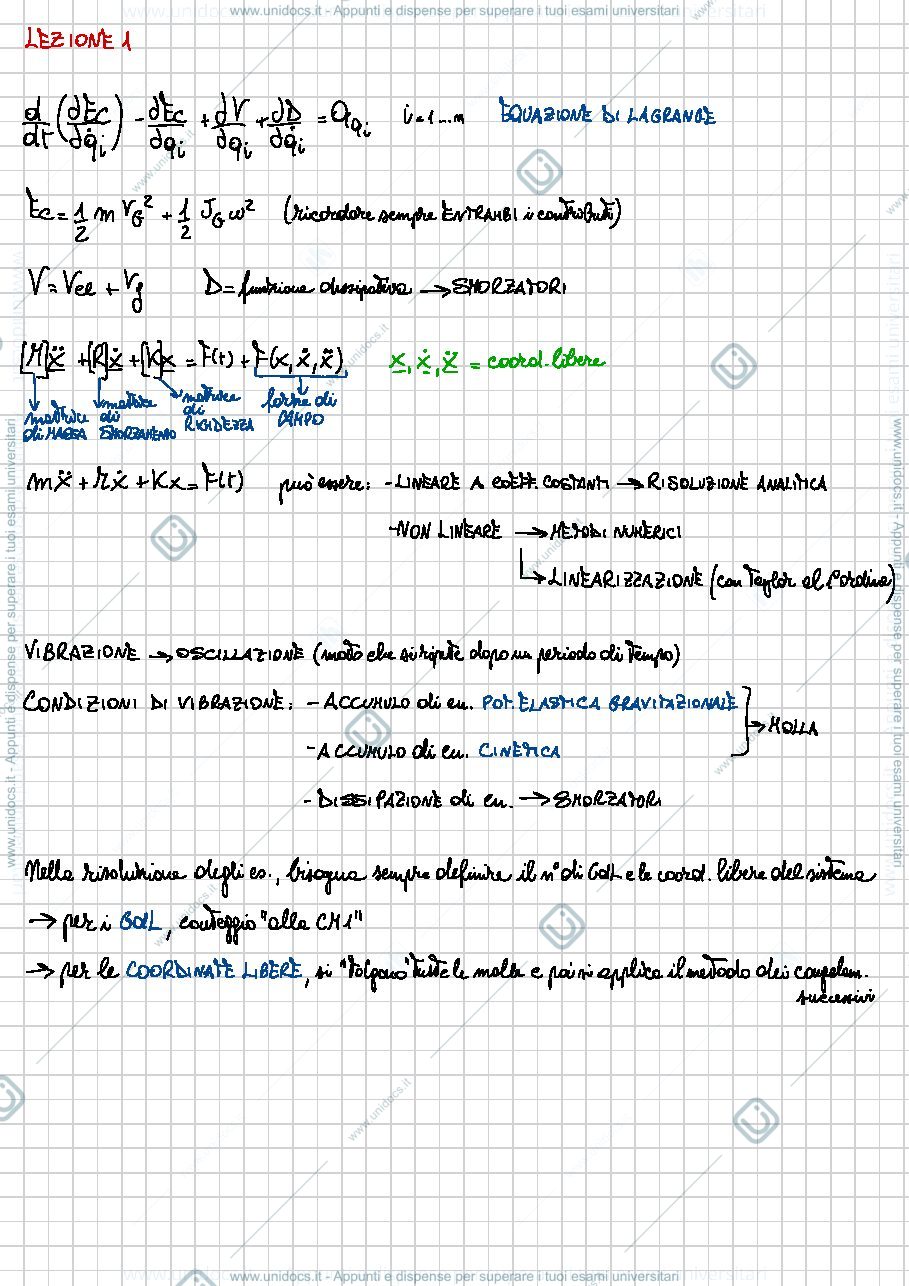 www.unidocs.it - Appunti e dispense per superare i tuoi esami universitari
LEZIONE 1
d/dt (∂Ec/∂q̇i) - ∂Ec/∂qi + ∂V/∂qi + ∂D/∂q̇i = Qqi i=1...n EQUAZIONE DI LAGRANGE
Ec = 1/2 m VG² + 1/2 JG ω² (ricordare sempre ENTRAMBI i contributi)
V = Vel + Vg D = funzione dissipativa → SMORZATORI
[M]ẍ + [R]ẋ + [K]x = F(t) + F(x, ẋ, ẍ) x, ẋ, ẍ = coord. libere
matrice di MASSA
matrice di SMORZAMENTO
matrice di RIGIDEZZA
forze di CAMPO
mẍ + rẋ + Kx = F(t) può essere: - LINEARE A COEFF. COSTANTI → RISOLUZIONE ANALITICA
- NON LINEARE → METODI NUMERICI
→ LINEARIZZAZIONE (con Taylor al 1° ordine)
VIBRAZIONE → OSCILLAZIONE (moto che si ripete dopo un periodo di tempo)
CONDIZIONI DI VIBRAZIONE: - ACCUMULO di en. POT. ELASTICA GRAVITAZIONALE
→ MOLLA
- ACCUMULO di en. CINETICA
- DISSIPAZIONE di en. → SMORZATORI
Nella risoluzione degli es., bisogna sempre definire il n° di GdL e le coord. libere del sistema
→ per i GdL, conteggio "alla CM1"
→ per le COORDINATE LIBERE, si "tolgono" tutte le molle e poi si applica il metodo dei congelam.
successivi
www.unidocs.it - Appunti e dispense per superare i tuoi esami universitari